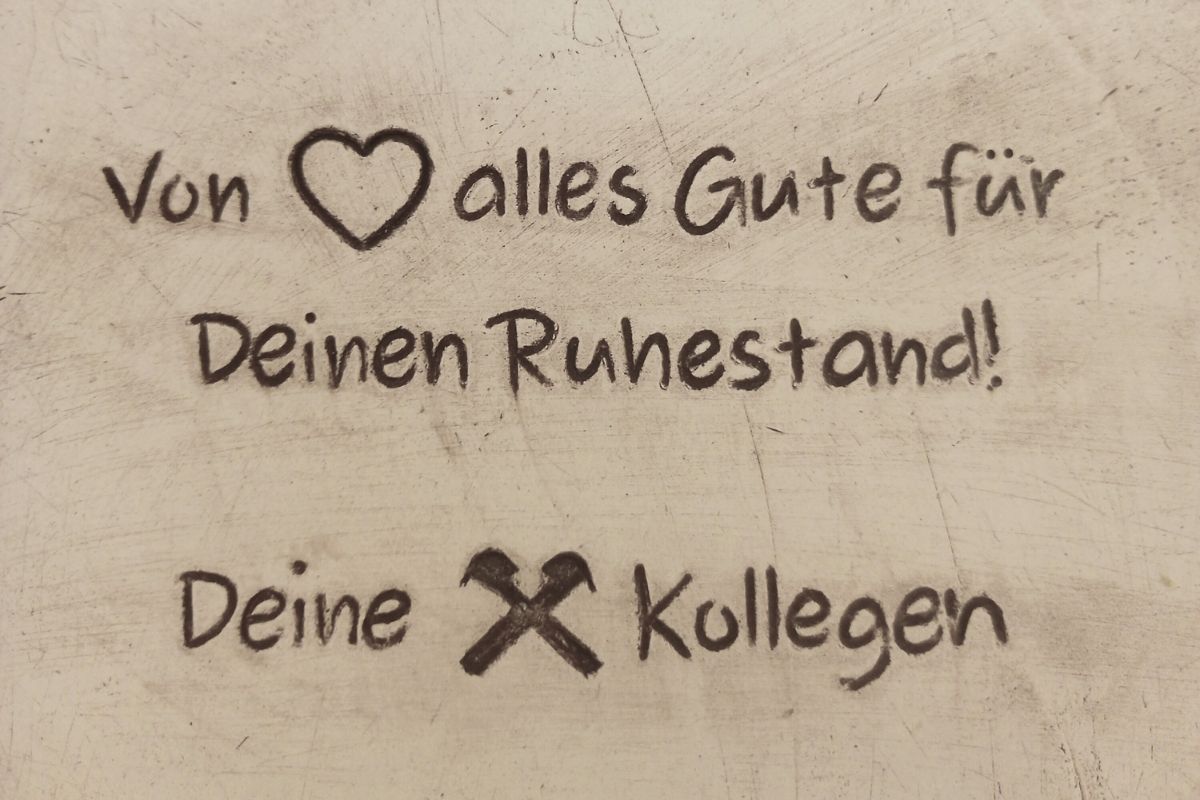 Von ♡ alles Gute für
Deinen Ruhestand!
Deine ⚒ Kollegen